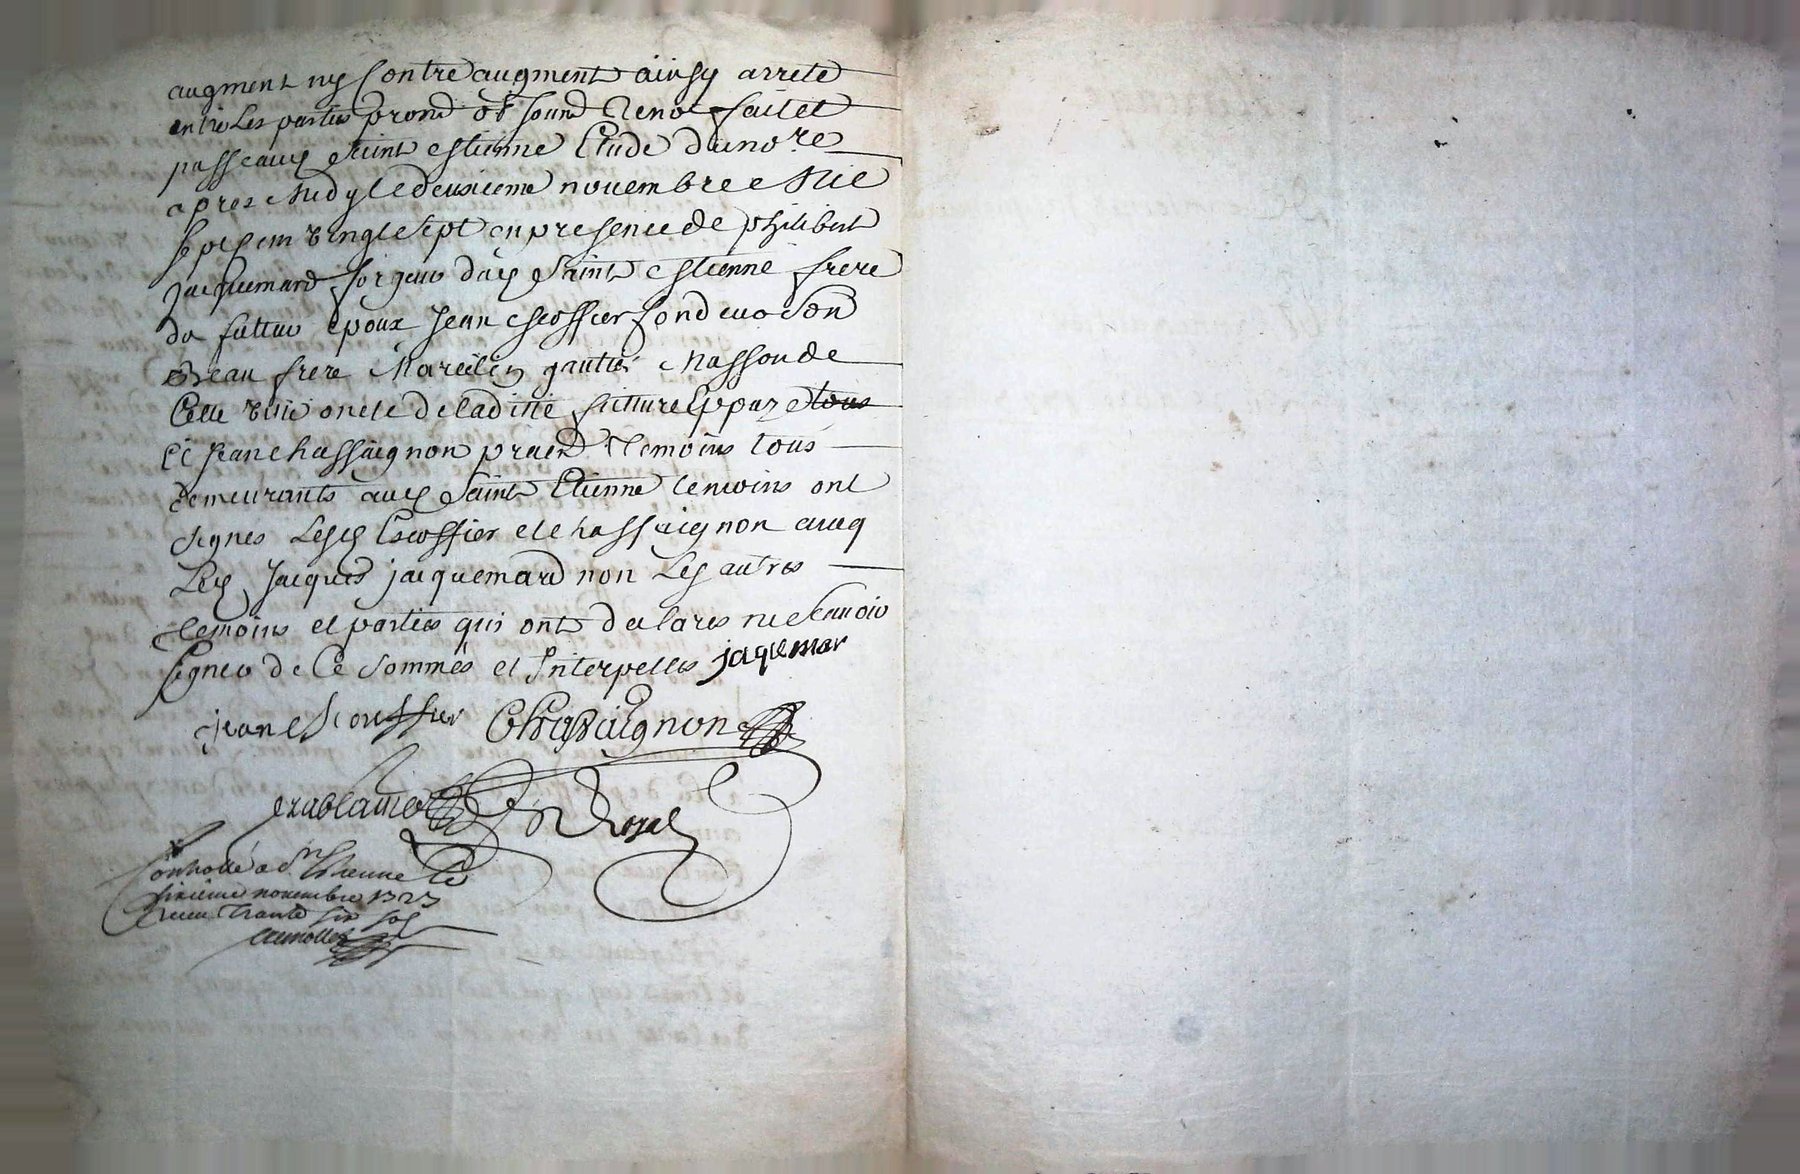 augment ny Contre augment ainsy arreté
entre Les parties prom ob soum Renon fait et
passe aud Saint Estienne Etude du no.re
apres Midy le deuxieme novembre Mil
sept cen vingt sept en presence de philibert
Jacquemard forgeur dud Saint Estienne frere
du futtur epoux Jean Escoffier fondeur Son
Beau frere Marcelin gautié Masson de
Cette ville oncle de laditte future Eppouze tous
et Jean chassaignon prati temoins tous
demeurants aud Saint Etienne temoins ont
Signes Lesd Escoffier et chassaignon aveq
Led Jacques jacquemard non Les autres
temoins et parties qui ont declares ne Scavoir
signer de Ce Sommés et Interpelles jaquemar
jean escouffier Chassaignon
Royal
Controllé a St Estienne Le
sixieme novembre 1727
Receu Trante six sols